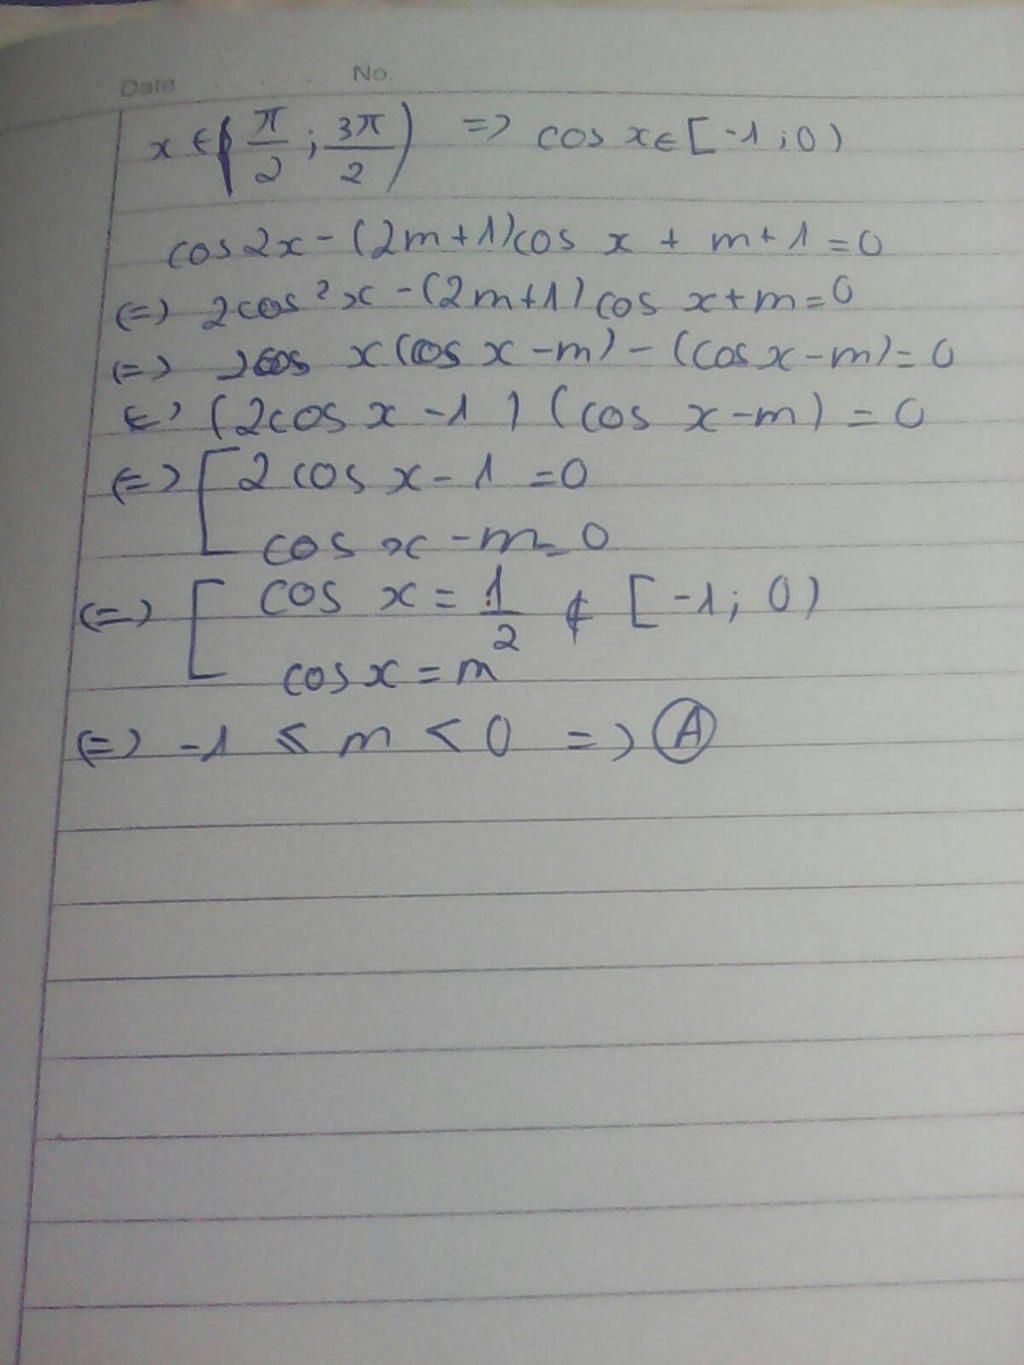 Date No.
x ∈ (π/2 ; 3π/2) => cos x ∈ [-1 ; 0)
cos2x - (2m+1)cos x + m+1 = 0
(=) 2cos²x - (2m+1) cos x + m = 0
(=) 2cos x (cos x - m) - (cos x - m) = 0
(=) (2cos x - 1) (cos x - m) = 0
(=) [ 2 cos x - 1 = 0
cos x - m = 0
(=) [ cos x = 1/2 ∉ [-1 ; 0)
cos x = m
(=) -1 ≤ m < 0 => A